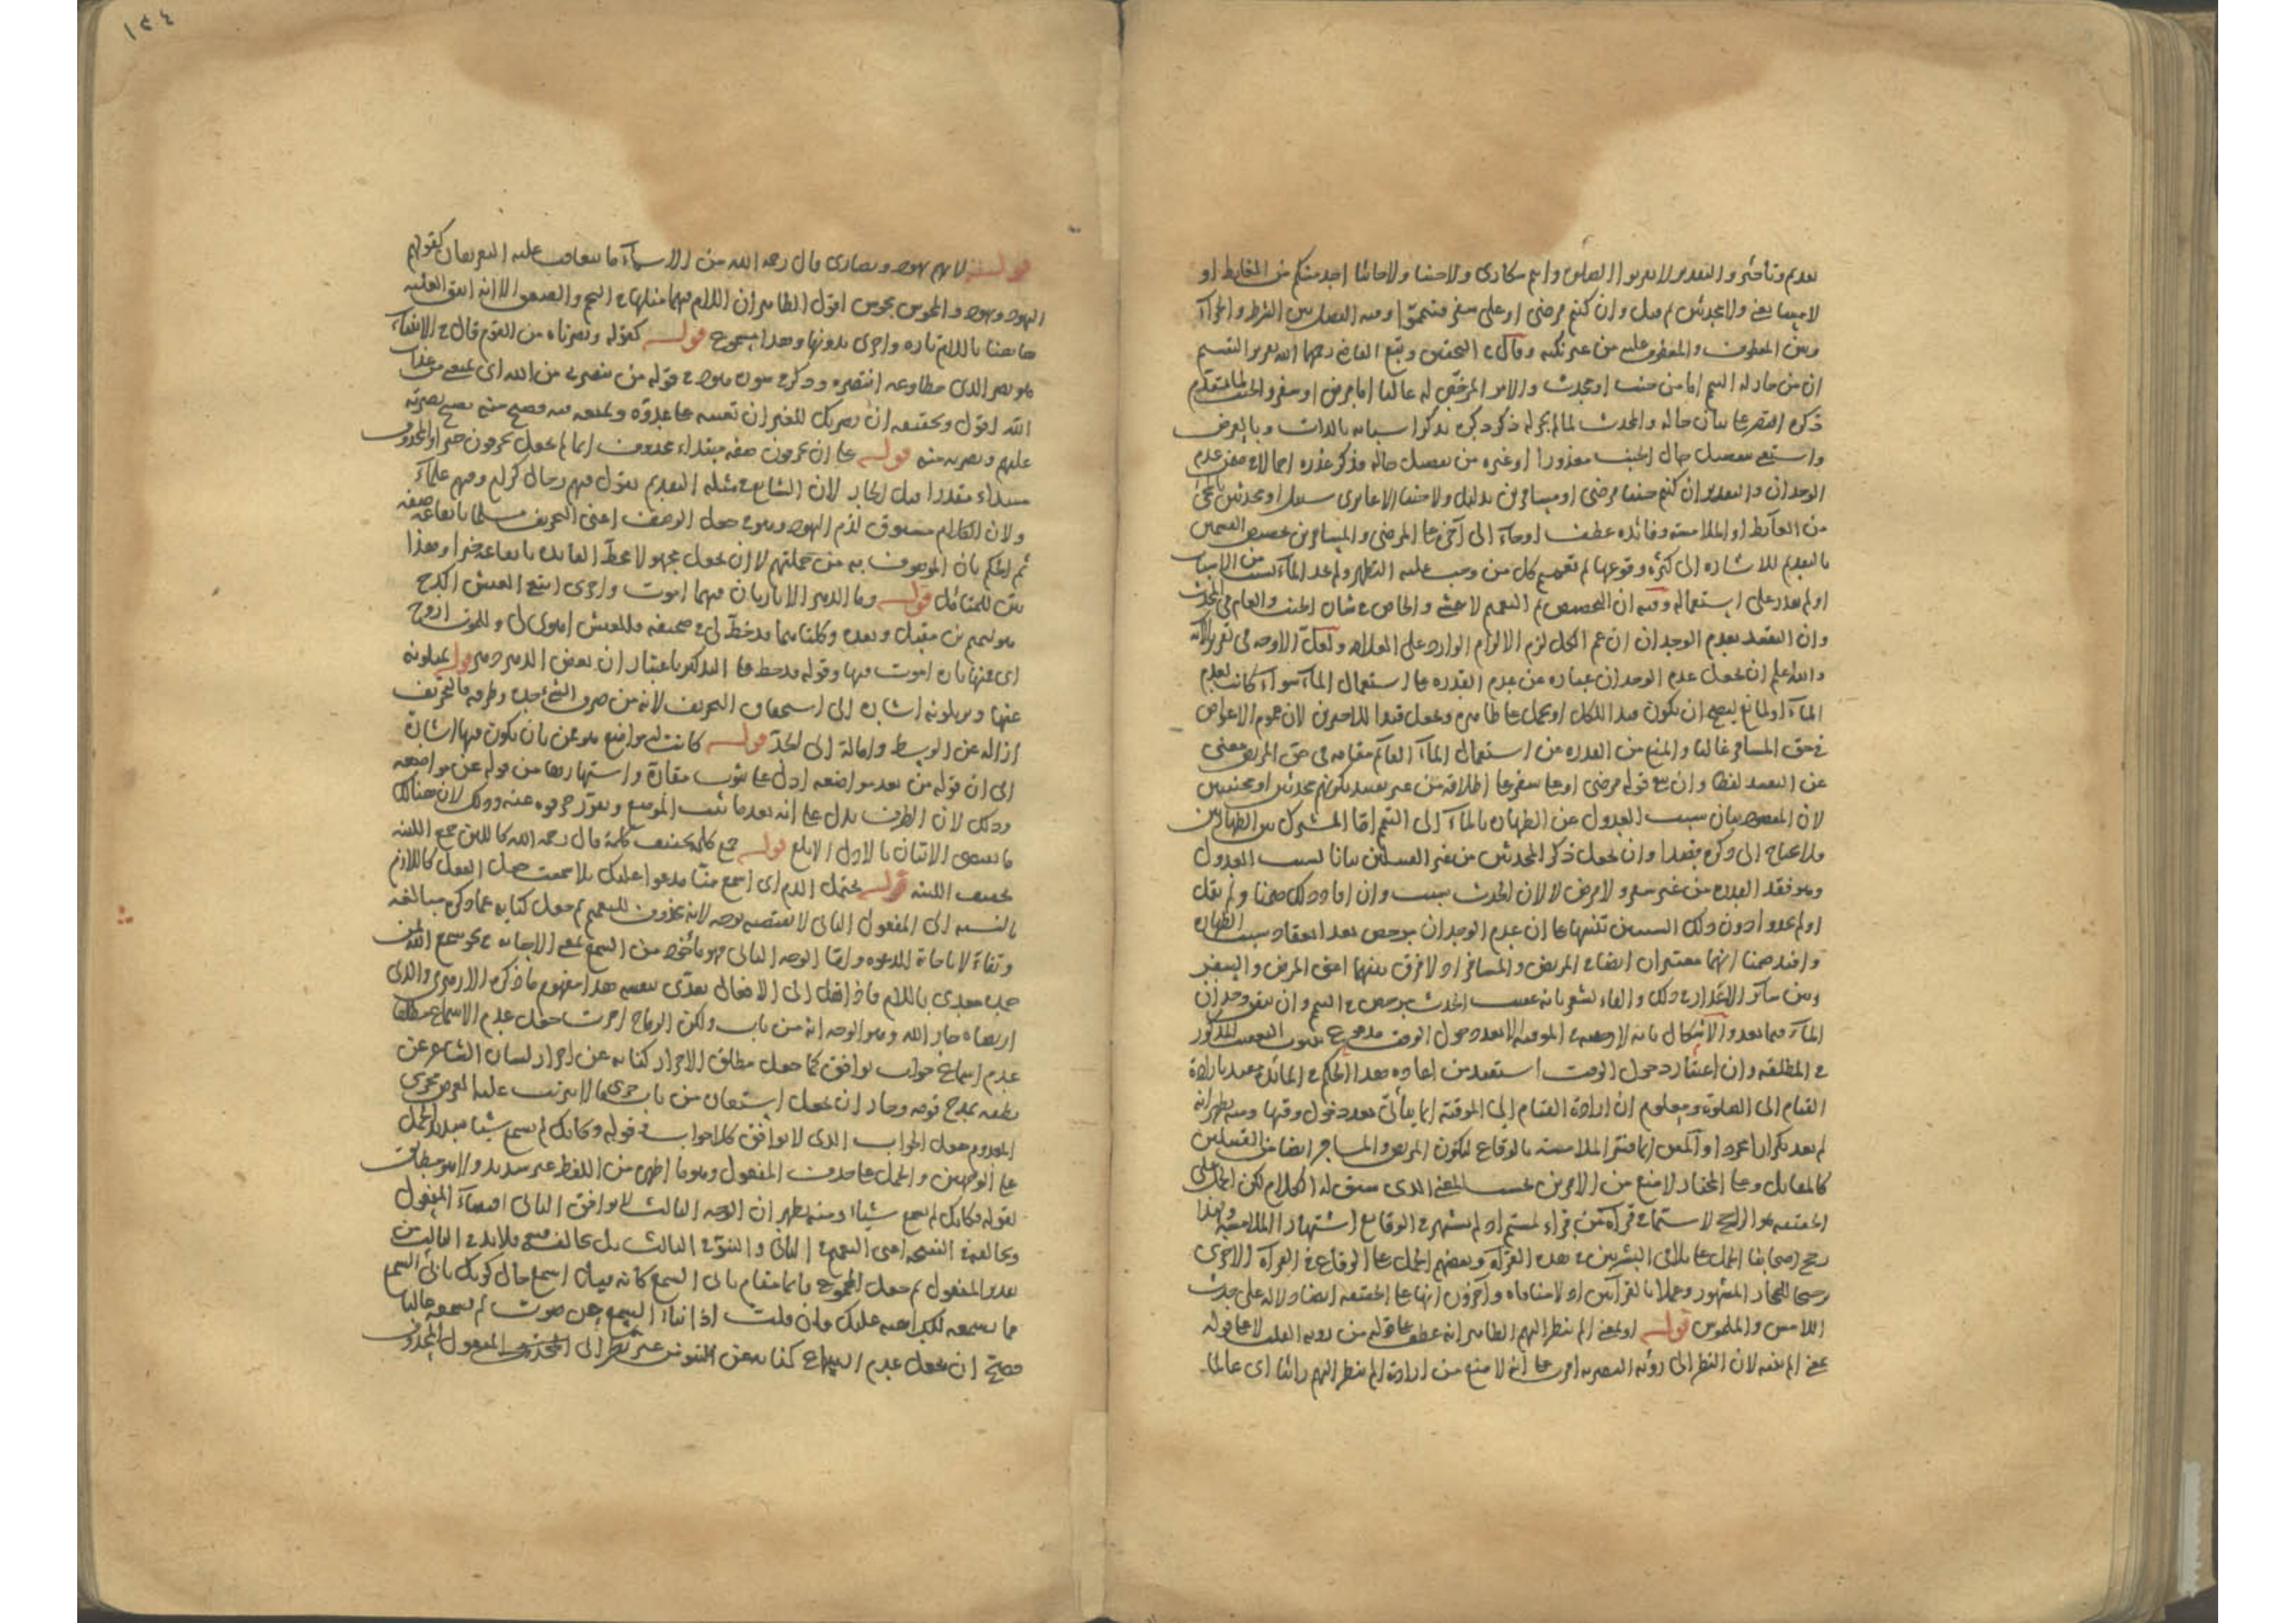 تقديم وتأخير والتقدير لا تقربوا الصلوة وانتم سكارى ولا جنبا ولا جائيا احد منكم من الغايط او
لامسا يعنى ولا محدثين ثم قيل وان كنتم مرضى او على سفر فتيمموا وفيه الفصل بين الشرط والجزاء
وبين المعطوف والمعطوف عليه من غير نكتة وقال في التحقيق وتبع القاضى رحمهما الله تقرير التقسيم
ان من حاله التيمم اما من جنب او محدث والامر المرخص له غالبا اما مرض او سفر والجنب لما تقدم
ذكره اقتصر على بيان حاله والمحدث لما لم يجر له ذكر ذكره بذكر اسبابه بالذات وبالعرض
واستغنى بتفصيل حال الجنب معذورا او غيره من تفصيل حاله فذكر عذره اجمالا في ضمن عدم
الوجدان والتقدير ان كنتم جنبا مرضى او مسافرين بدليل ولا جنبا الا عابرى سبيل او محدثين بالمجئ
من الغائط او الملامسة وفائدة عطف او جاء الى آخره على المرضى والمسافرين تخصيص القسمين
بالتقديم للاشارة الى كثرة وقوعها ثم تعميم كل من وجب عليه التطهر ولم يجد الماء لسبب من الاسباب
او لم يقدر على استعماله وفيه ان التخصيص ثم التعميم لا يخفى والخاص في شان الجنب والعام في المحدث
وان التقييد بعدم الوجدان ان عم الكل لزم الالزام الوارد على العلامة ولعل الاوجه في تقرير الآية
والله اعلم ان يجعل عدم الوجدان عبارة عن عدم القدرة على استعمال الماء سواء كانت لعدم
الماء او لمانع ليصح ان يكون قيدا للكل او يحمل على ظاهره ويجعل قيدا للاخيرين لان عموم الاعواز
في حق المسافر غالبا والمنع من القدرة من استعمال الماء القائم مقامه في حق المريض مغنى
عن التقييد لفظا وان بقى قوله مرضى او على سفر على اطلاقه من غير تقييد بكونهم محدثين او مجنبين
لان المقصود بيان سبب العدول عن الطهارة بالماء الى التيمم اما المشترك بين الطهارتين
فلا يحتاج الى ذكره قصدا وان يجعل ذكر المحدثين من غير القسمين بيانا لسبب العدول
وهو فقد القدرة من غير سفر ولا مرض لا لان الحدث سبب وان افاد ذلك ضمنا ولم يقل
او لم تجدوا دون ذلك السببين تنبيها على ان عدم الوجدان مرخص بعد انعقاد سبب الطهارة
وافيد ضمنا انهما معتبران ايضا في المريض والمسافر اذ لا فرق بينهما اعنى المرض والسفر
وبين سائر الاعذار في ذلك والفاء تشعر بانه عقيب الحدث يرخص في التيمم وان تيقن وجدان
الماء فيما بعد والاشكال بانه لا رخصة في الموقتة الا بعد دخول الوقت مدفوع
في المطلقة وان اعتبار دخول الوقت استفيد من اعادة هذا الحكم في المائدة مقيدا بارادة
القيام الى الصلوة ومعلوم ان ارادة القيام الى الموقتة انما يتأتى بعد دخول وقتها ومنه يظهر انه
لم يعد تكرارا مجردا
كالمقابل وعلى المختار لا منع من الامرين بحسب المعنى الذى سيق له الكلام لكن الحمل على
الحقيقة هو الراجح لا سيما في قراءة من قرأ لمستم اذ لم يشتهر في الوقاع اشتهار الملامسة ولهذا
رجح اصحابنا الحمل على تلاقى البشرتين في هذه القراءة وبعضهم الحمل على الوقاع في القراءة الاخرى
ترجيحا للمجاز المشهور وعملا بالقراءتين اذ لا منافاة وآخرون انها على الحقيقة ايضا دلالة على حدث
اللامس والملموس قوله او بمعنى الم ينظر اليهم الظاهر انه عطف على قوله من رؤية القلب لا على قوله
بمعنى الم ينته لان النظر الى رؤية البصرية اقرب على انه لا منع من ارادة الم ينظر اليهم رائيا اى عالما
١٢٤
قوله لانهم يهود ونصارى قال رحمه الله من الاسماء ما يتعاقب عليه التعريفان كقولهم
اليهود ويهود والمجوس مجوس اقول الظاهر ان اللام فيهما مثلها في النجم والصعق الا انه اتفق العلمية
هاهنا باللام تارة واخرى بدونها وهذا مسموع قوله كقوله ونصرناه من القوم قال في الانبياء
هو نصر الذى مطاوعه انتصر وذكر في سورة هود في قوله من ينصرنى من الله اى يمنعنى من عذاب
الله اقول وتحقيقه ان نصرتك للغير ان تعينه على عدوه وتمنعه منه فصح منه يصح نصرته
عليهم ونصرته منه قوله على ان يحرفون صفة مبتداء محذوف انما لم يجعل يحرفون خبرا والمحذوف
مبتداء مقدرا قبل الجار لان الشايع في مثله التقديم تقول فيهم رجال كرام وفيهم علماء
ولان الكلام مسوق لذم اليهود وهو في جعل الوصف اعنى التحريف مسلما بايقاعه صفة
ثم الحكم بان الموصوف به من جملتهم لا ان يجعل مجهولا محط الفائدة بايقاعه خبرا وهذا
بين للمتامل قوله وما الدهر الا تارتان فمنهما اموت واخرى ابتغى العيش اكدح
هو لتميم بن مقبل وبعده وكلتاهما قد خط لى في صحيفة فللعيش اهوى لى وللموت اروح
اى فمنها تارة اموت فيها وقوله قد خط على التذكير باعتبار ان بعض الدهر دهر قوله يميلونه
عنها ويزيلونه اشارة الى اشتقاق التحريف لانه من حرف الشئ حده وطرفه فالتحريف
ازالة عن الوسط وامالة الى الحد قوله كانت له مواضع هو قمن بان يكون فيها اشارة
الى ان قوله من بعد مواضعه ادل على ثبوت مقارة واشتهارها من قوله عن مواضعه
وذلك لان الظرف يدل على انه بعد ما ثبت الموضع وتقرر حرفوه عنه وذلك لان هنالك
ما يقتضى الاتيان بالادل الابلغ قوله جمع كلمة تخفيف كلمة قال رحمه الله كاللبن جمع اللبنة
تخفيف اللبنة قوله يحتمل الذم اى اسمع منا مدعوا عليك بلا سمعت جعل الفعل كاللازم
بالنسبة الى المفعول الثانى لا يقتضيه توجه لانه محذوف للتعميم ثم جعل كناية عما ذكره مبالغة
وتفاءلا باجابة الدعوة واما الوجه الثانى فهو مأخوذ من السمع بمعنى الاجابة في نحو سمع الله لمن
حمده معدى باللام فاذا نقل الى الافعال تعدى بنفسه هذا مفهوم ما ذكره الازهرى والذى
ارتضاه جار الله وهو الوجه انه من باب ولكن الرماح اجرت جعل عدم الاسماع مطلقا
عدم اسماع جواب يوافق كما جعل مطلق الاجرار كناية عن اجرار لسان الشاعر عن
نطقه بمدح قومه وجاز ان يجعل استعارة من باب جرى ما لا يترتب عليه الغرض مجرى
المعدوم جعل الجواب الذى لا يوافق كلا جواب في قوله وكانك لم تسمع شيئا
على الوجهين والحمل على حذف المفعول وهو ما اظهر من اللفظ غير سديد ولا هو مطابق
لقوله وكانك لم تسمع شيئا ومنه يظهر ان الوجه الثالث لا يوافق الثانى اقتضاء المفعول
ثم جعل المجموع قائما مقام نابى السمع كانه قيل اسمع حال كونك نابى السمع
عما تسمعه لكراهته عليك فان قلت اذا نبا السمع عن صوت لم يسمعه غالبا
فصح ان يجعل عدم السماع كناية عن النبو من غير نظر الى المفعول المحذوف